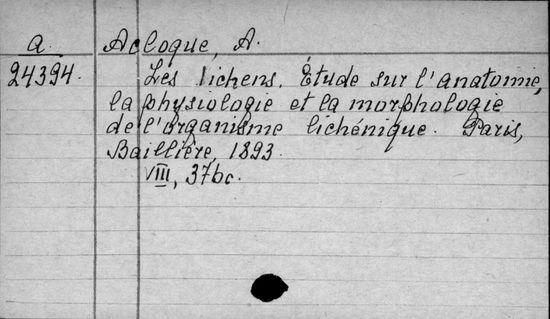 a. Acloque, A.
24394. Les lichens. Étude sur l'anatomie,
la physiologie et la morphologie
de l'organisme lichénique. Paris,
Baillière, 1893.
VIII, 376c.